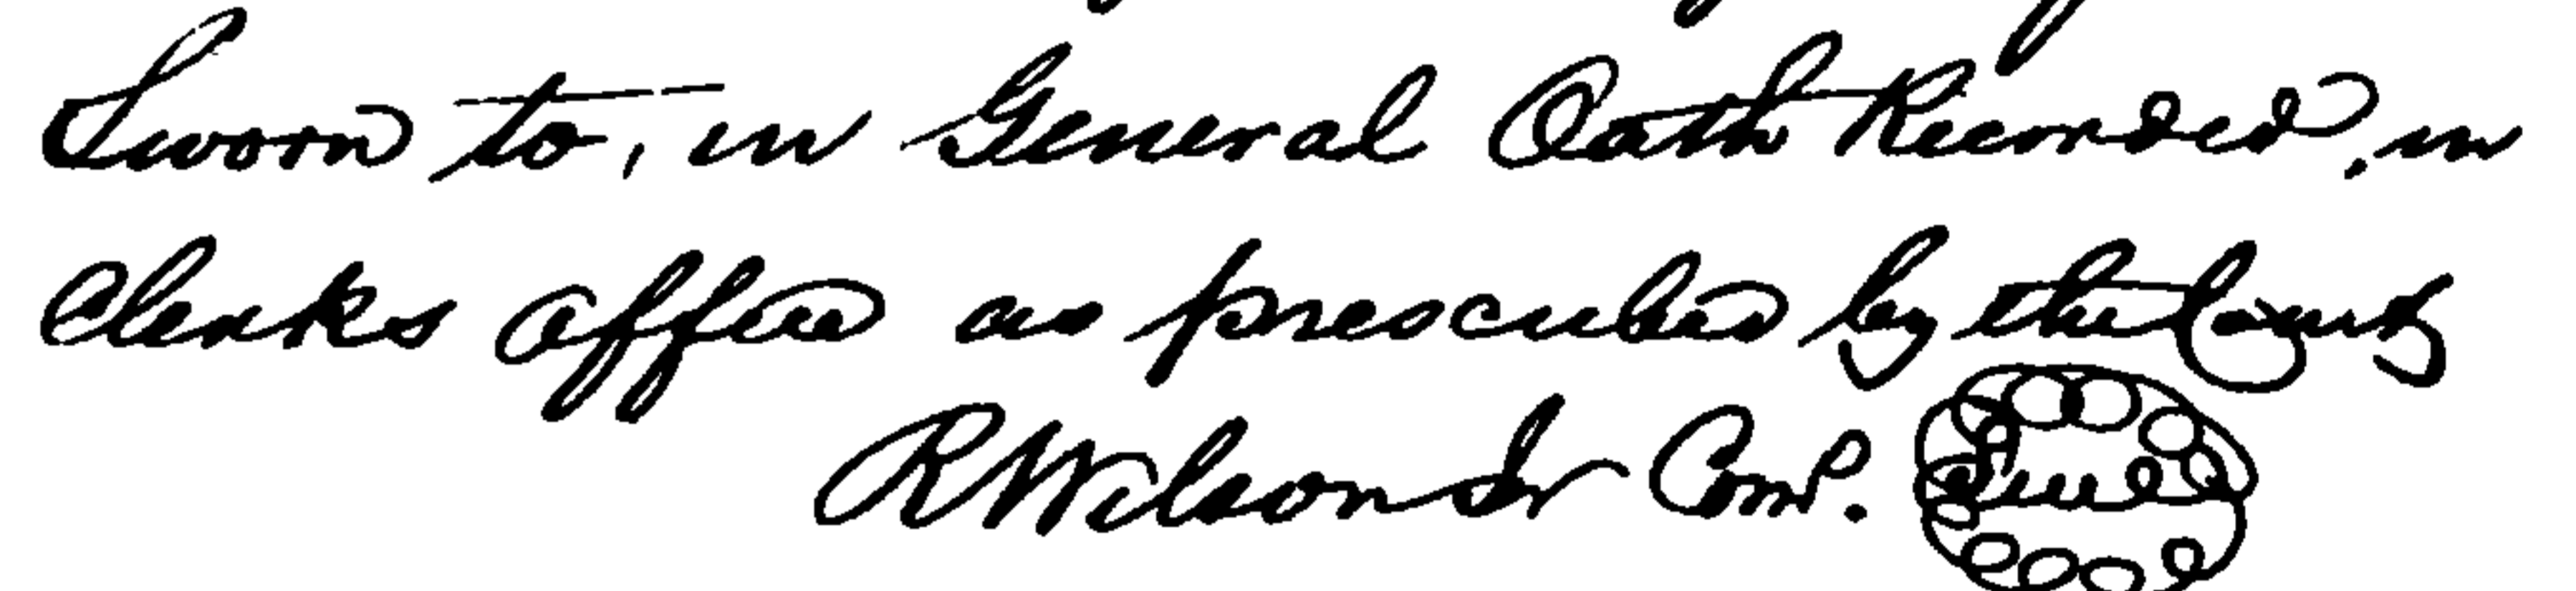 Sworn to, in General Oath Recorded, in
Clerks office as prescribed by the County
R Wilson Sr Com.
Seal